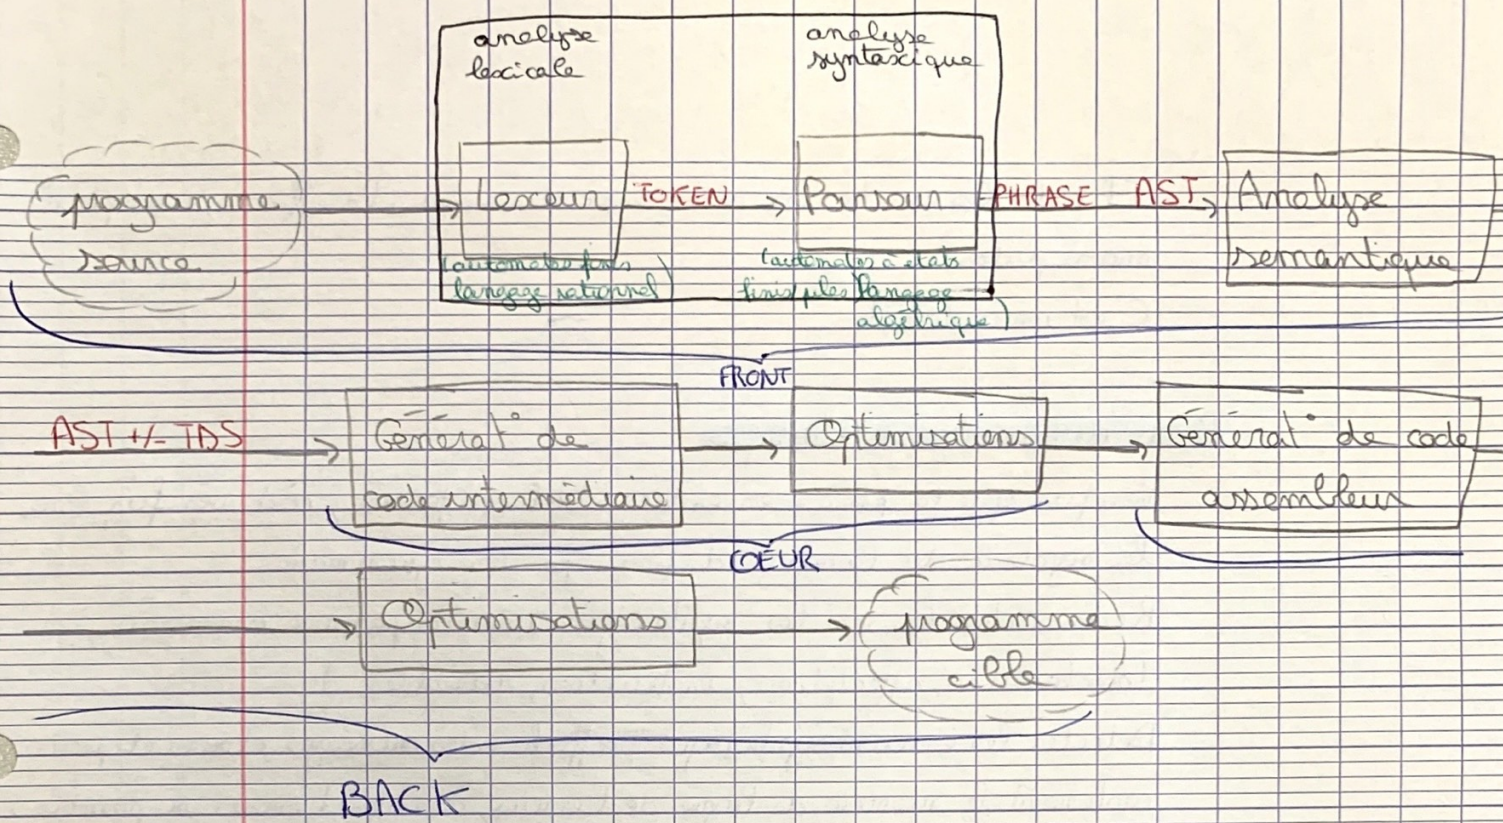 analyse
lexicale
analyse
syntaxique
programme
source
Lexeur
TOKEN
Parseur
PHRASE
AST
Analyse
semantique
(automates finis
langage rationnel)
(automates à états
finis + piles langage
algébrique)
FRONT
AST +/- TDS
Générat° de
code intermédiaire
Optimisations
Générat° de code
assembleur
COEUR
Optimisations
programme
cible
BACK